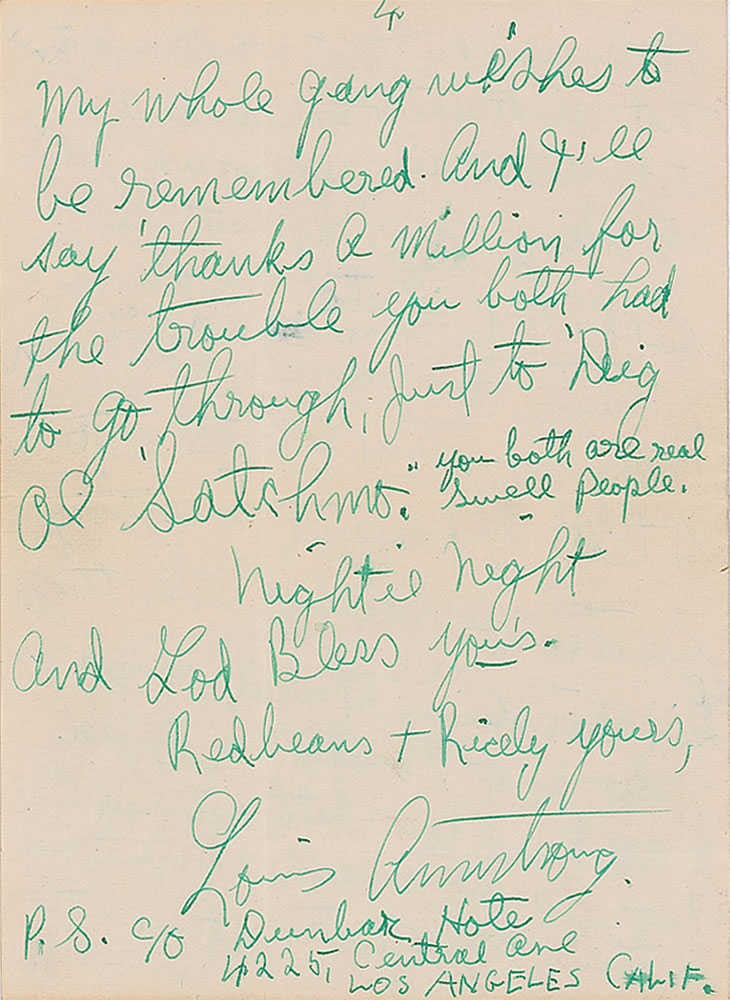 4
My whole gang wishes to
be remembered. And I'll
say 'thanks a million for
the trouble you both had
to go through, Just to 'Dig
Ol 'Satchmo." you both are real
Swell People.
Nightie Night
And God Bless you's.
Redbeans + Ricely yours,
Louis Armstrong.
P.S. c/o Dunbar Hote
4225, Central Ave
LOS ANGELES CALIF.